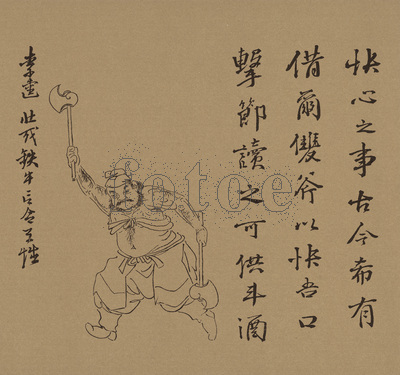 快心之事古今希有
借爾雙斧以快吾口
擊節讀之可供斗酒
李逵 壯哉鉄牛至性
fotoe